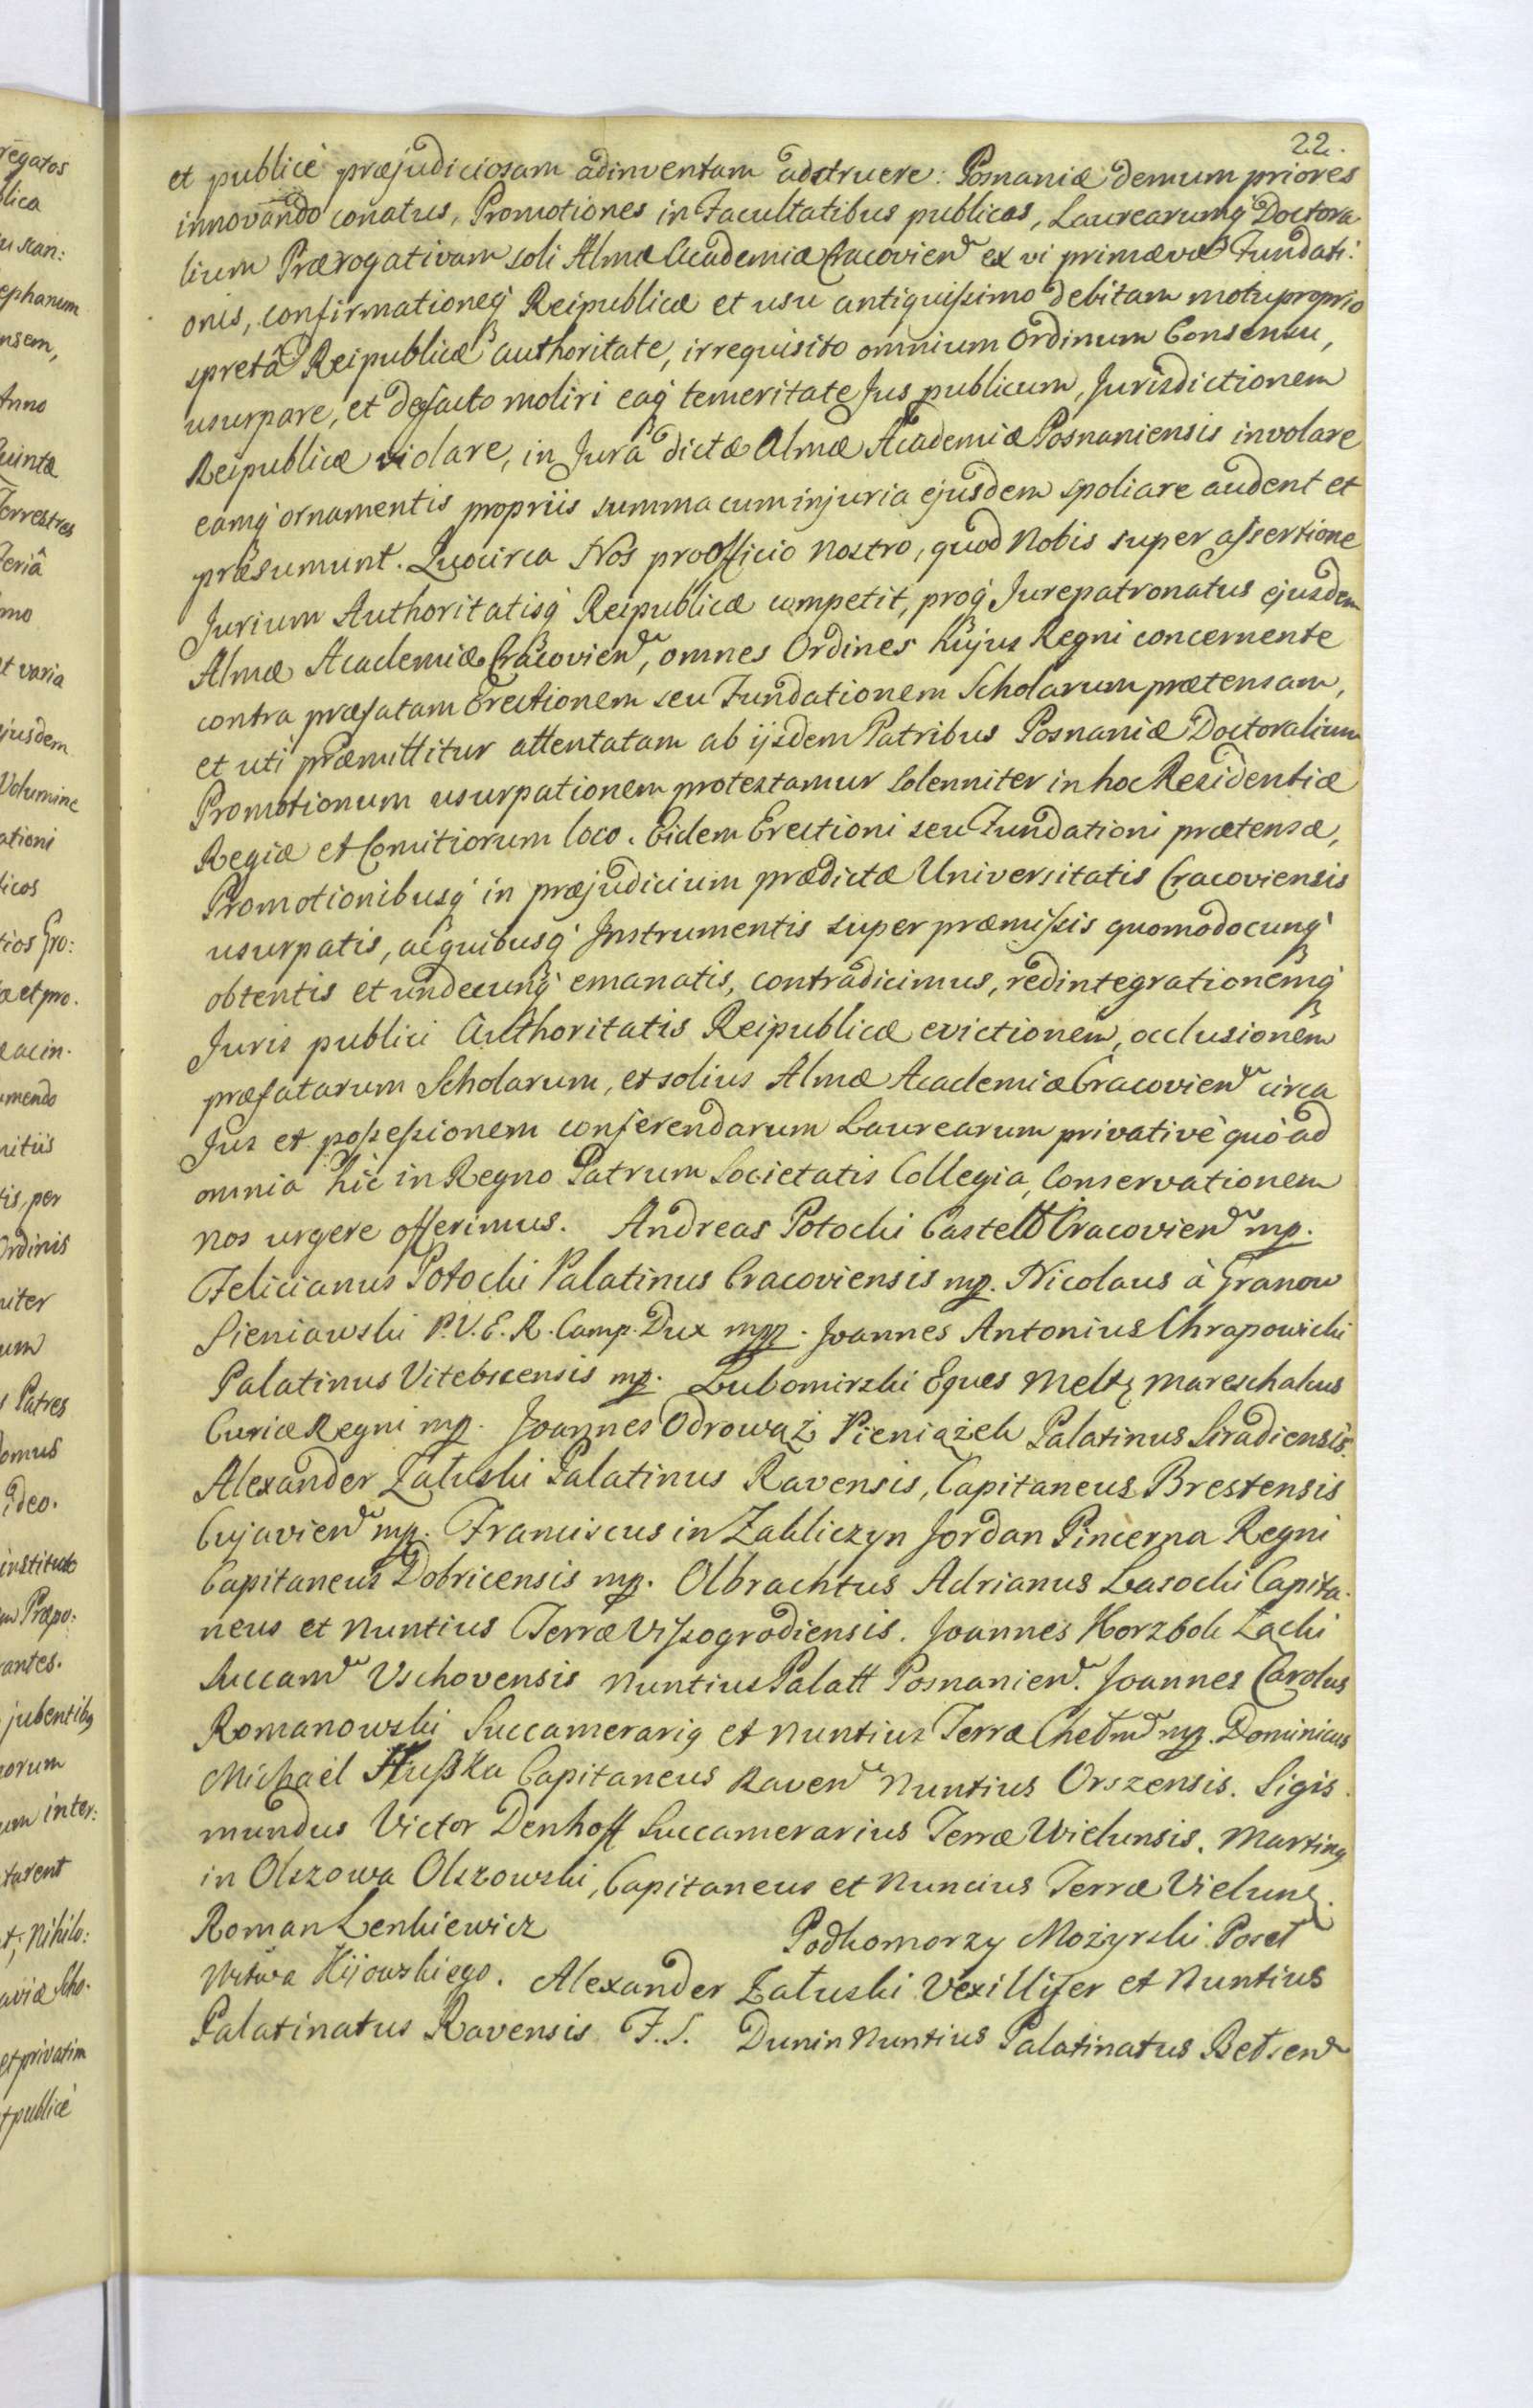 22.
et publicè præjudiciosam adinventam adstruere: Posnaniæ demum priores
innovando conatus, Promotiones in Facultatibus publicas, Laurearumq́ Doctora
lium Prærogativam soli Almæ Academiæ Cracovien ex vi primævæ Fundati:
onis, confirmationeq́ Reipublicæ et usu antiquissimo debitam motu proprio
spretâ Reipublicæ authoritate, irrequisito omnium Ordinum Consensu,
usurpare, et defacto moliri eaq́ temeritate Jus publicum, Jurisdictionem
Reipublicæ violare, in Jura dictæ Almæ Academiæ Posnaniensis involare
eamq́ ornamentis propriis summa cum injuria ejusdem spoliare audent et
præsumunt. Quocirca Nos pro Officio nostro, quod Nobis super assertione
Jurium Authoritatisq́ Reipublicæ competit, proq́ Jurepatronatus ejusdem
Almæ Academiæ Cracovien, omnes Ordines hujus Regni concernente
contra præfatam Erectionem seu Fundationem Scholarum prætensam,
et uti præmittitur attentatam ab ijsdem Patribus Posnaniæ Doctoralium
Promotionum usurpationem protestamur solenniter in hoc Residentiæ
Regiæ et Comitiorum loco. Eidem Erectioni seu Fundationi prætensæ,
Promotionibusq́ in præjudicium prædictæ Universitatis Cracoviensis
usurpatis, acquibusq́ Instrumentis super præmissis quomodocunq́
obtentis et undecunq́ emanatis, contradicimus, redintegrationemq́
Juris publici Authoritatis Reipublicæ evictionem, occlusionem
præfatarum Scholarum, et solius Almæ Academiæ Cracovien circa
Jus et possessionem conferendarum Laurearum privativè quò ad
omnia hic in Regno Patrum Societatis Collegia, Conservationem
nos urgere offerimus. Andreas Potocki Castell Cracovien mp.
Felicianus Potocki Palatinus Cracoviensis mp. Nicolaus à Granow
Sieniawski P.V.E.R. Camp. Dux mpp. Joannes Antonius Chrapowicki
Palatinus Vitebscensis mp. Lubomirski Eques Melt, Mareschalcus
Curiæ Regni mp. Joannes Odrowąż Pieniążek Palatinus Siradiensis.
Alexander Załuski Palatinus Ravensis, Capitaneus Brestensis
Cujavien mp. Franciscus in Zakliczyn Jordan Pincerna Regni
Capitaneus Dobricensis mp. Olbrachtus Adrianus Lasocki Capita-
neus et Nuntius Terræ Vissogrodiensis. Joannes Korzbok Łącki
Succam Vschovensis Nuntius Palatt Posnanien. Joannes Carolus
Romanowski Succamerarig et Nuntius Terræ Chełm mp. Dominicus
Michaël Hußka Capitaneus Raven Nuntius Orszensis. Sigis.
mundus Victor Denhoff Succamerarius Terræ Wielunsis. Marting
in Olszowa Olszowski, Capitaneus et Nuncius Terræ Vieluns.
Roman Lenkiewicz Podkomorzy Mozyrski Poseł
Wttwa Kijowskiego. Alexander Załuski Vexillifer et Nuntius
Palatinatus Ravensis F.S. Dunin Nuntius Palatinatus Bełsen